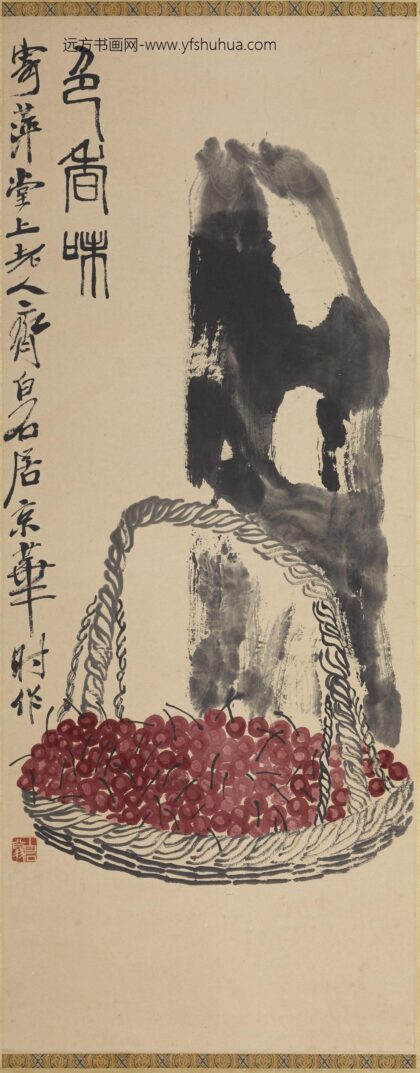 远方书画网-www.yfshuhua.com
色香味
寄萍堂上老人齐白石居京華时作